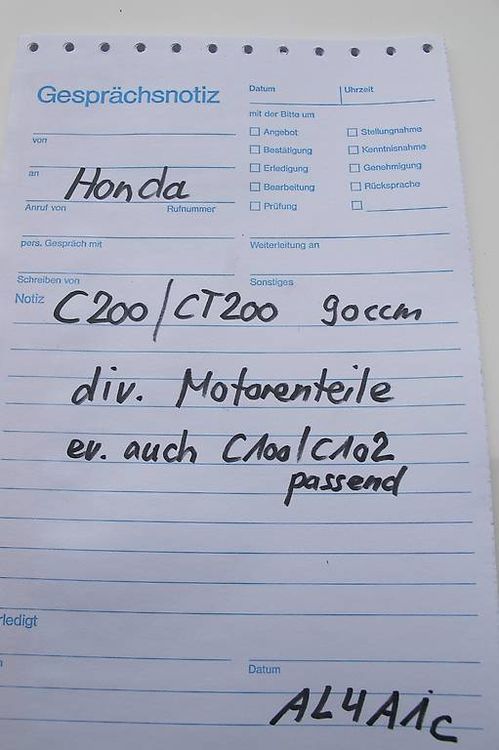 Gesprächsnotiz
Datum
Uhrzeit
mit der Bitte um
Angebot
Stellungnahme
Bestätigung
Kenntnisnahme
Erledigung
Genehmigung
Bearbeitung
Rücksprache
Prüfung
von
an
Honda
Anruf von
Rufnummer
pers. Gespräch mit
Weiterleitung an
Schreiben von
Sonstiges
Notiz
C200/CT200 90ccm
div. Motorenteile
ev. auch C100/C102
passend
rledigt
Datum
AL4A1c